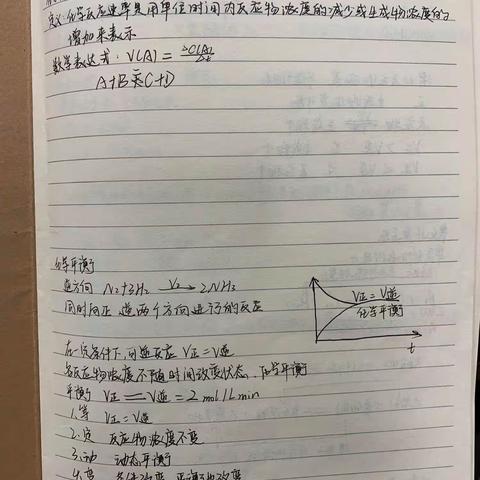 定义:化学反应速率是用单位时间内反应物浓度的减少或生成物浓度的
增加来表示
数学表达式: V(A) = △C(A)/△t
A+B⇌C+D
化学平衡
逆方向 N₂+3H₂ V₂→ 2NH₃
同时向正、逆两个方向进行的反应
V正=V逆
化学平衡
t
在一定条件下,可逆反应 V正=V逆
各反应物浓度不随时间改变状态、化学平衡
平衡 V正 = V逆 = 2 mol/L min
1.等 V正=V逆
2.定 反应物浓度不变
3.动 动态平衡
4.变 条件改变 平衡也改变